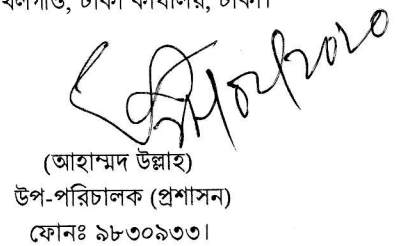 ঢাকা কার্যালয়, ঢাকা।
(আহাম্মদ উল্লাহ)
উপ-পরিচালক (প্রশাসন)
ফোনঃ ৯৮৩০৯৩৩।